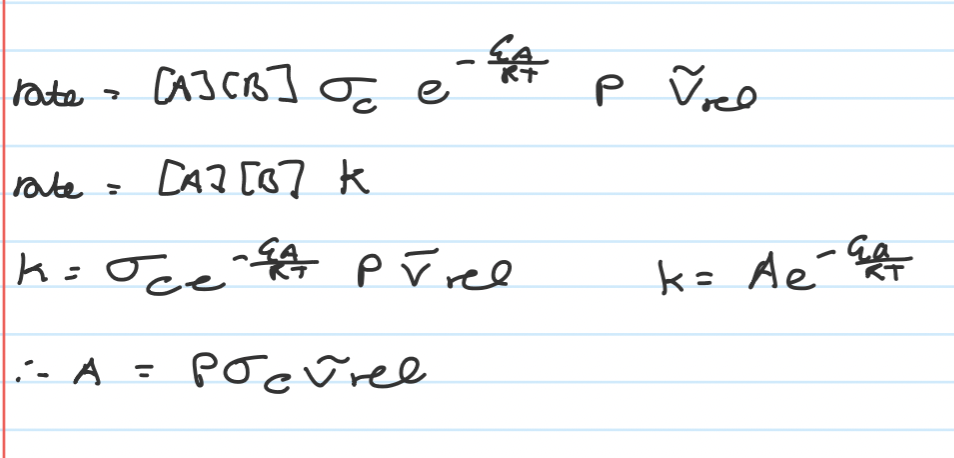 rate = [A][B] σc e^-EA/RT P ṽrel
rate = [A][B] k
k = σc e^-EA/RT P v̄rel k = Ae^-Ea/RT
∴ A = Pσcṽrel